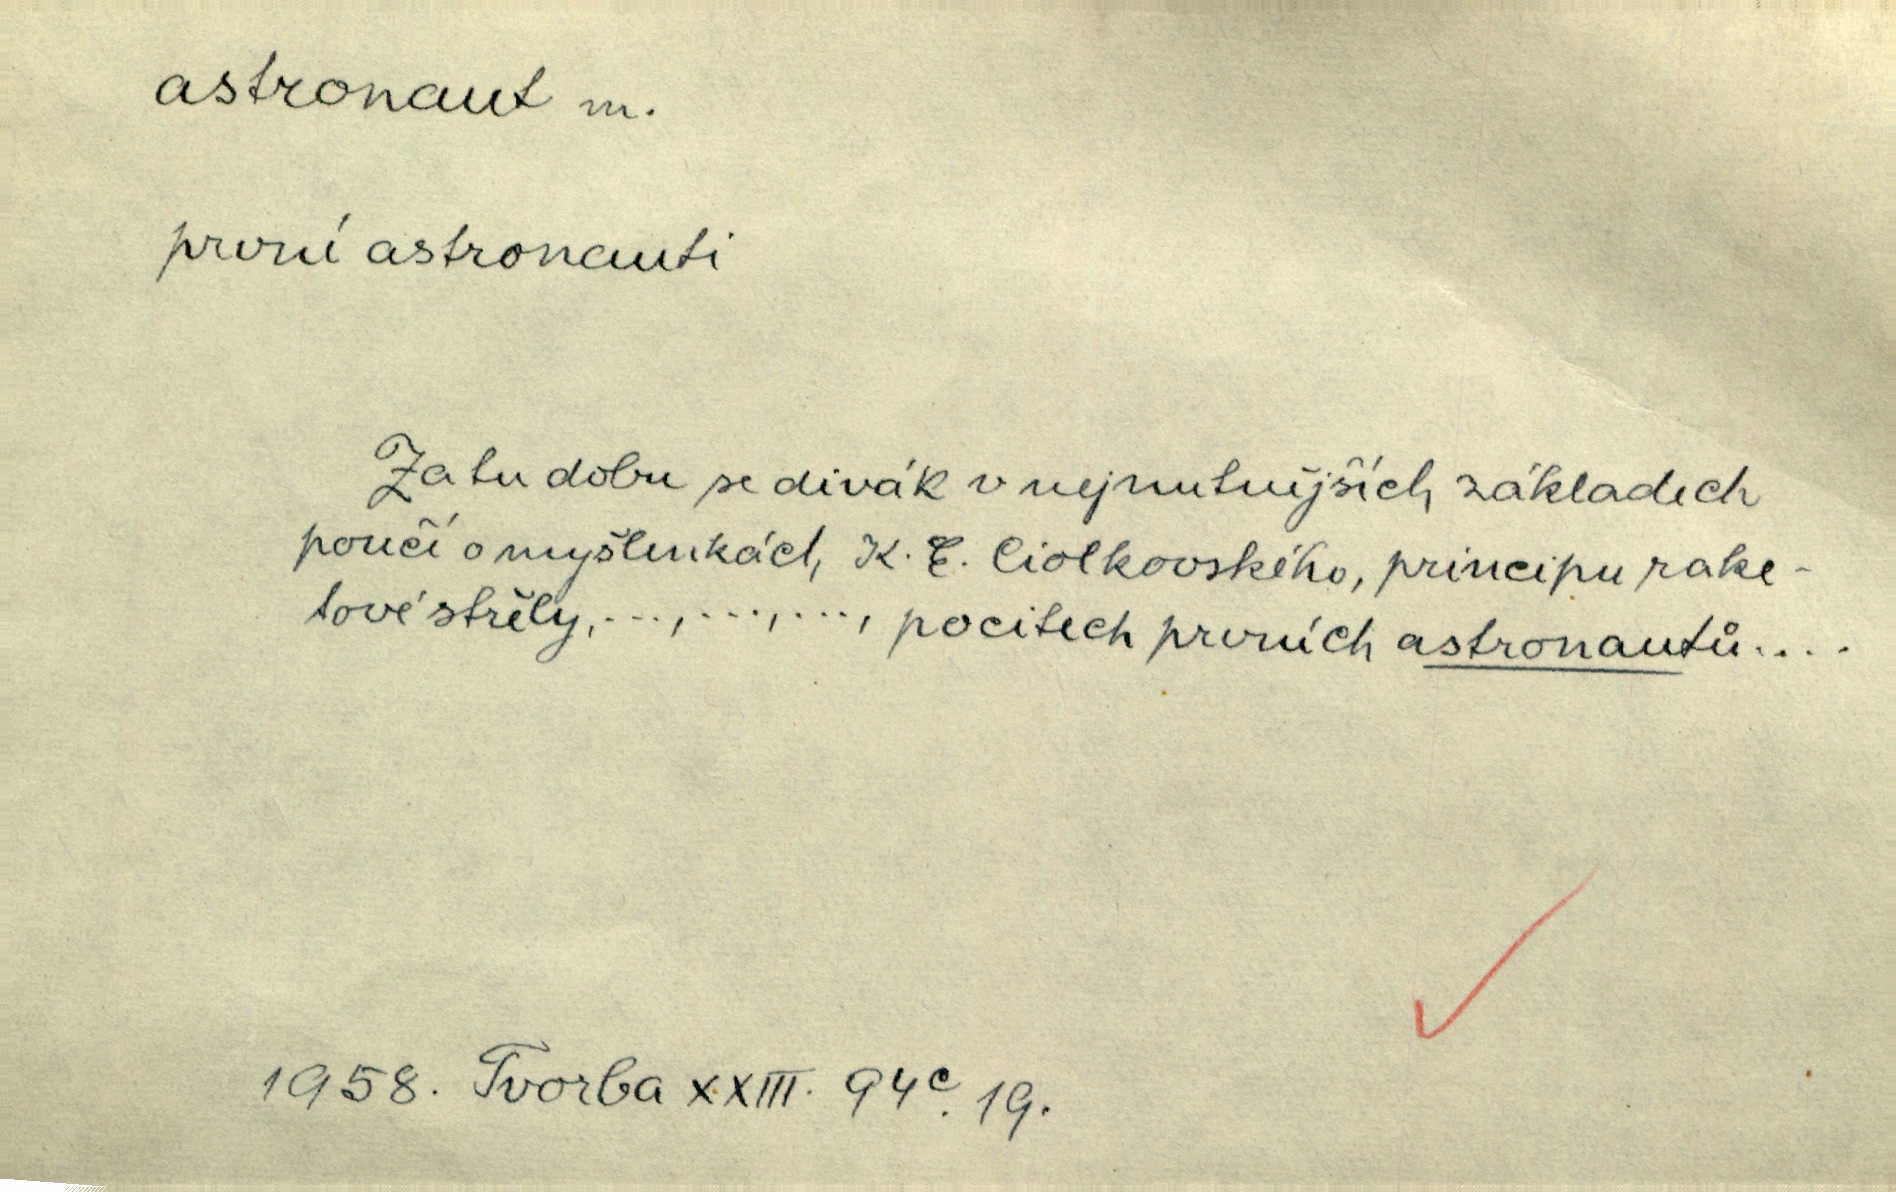 astronaut m.
první astronauti
Za tu dobu se divák v nejnutnějších základech
poučí o myšlenkách K. E. Ciolkovského, principu rake-
tové střely, ..., ..., ..., pocitech prvních astronautů....
1958. Tvorba XXIII. 94c. 19.